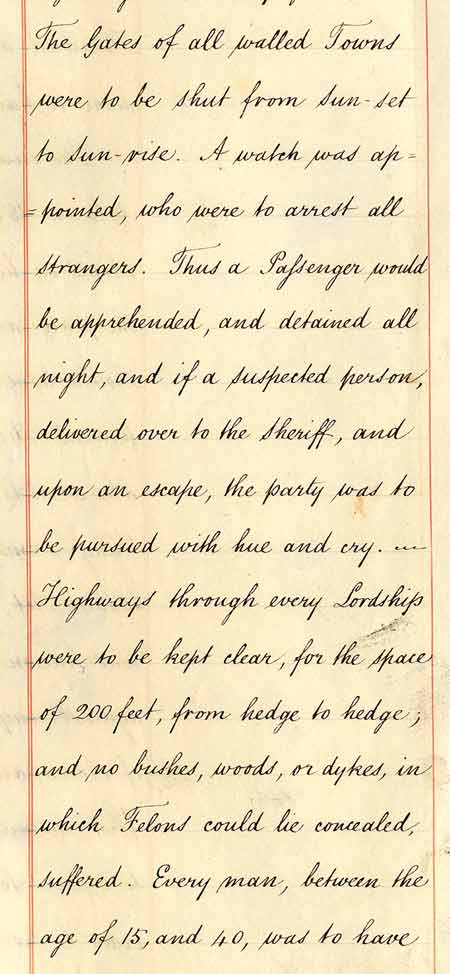 The Gates of all walled Towns
were to be shut from sun-set
to sun-rise. A watch was ap=
=pointed, who were to arrest all
strangers. Thus a Paſsenger would
be apprehended, and detained all
night, and if a suspected person,
delivered over to the Sheriff, and
upon an escape, the party was to
be pursued with hue and cry. —
Highways through every Lordship
were to be kept clear, for the space
of 200 feet, from hedge to hedge;
and no bushes, woods, or dykes, in
which Felons could lie concealed,
suffered. Every man, between the
age of 15, and 40, was to have